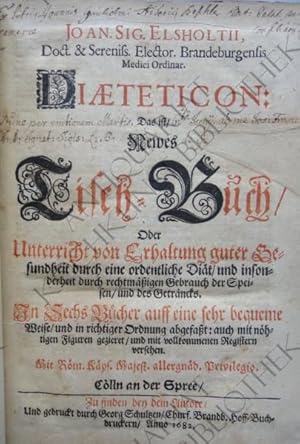 JOAN. SIG. ELSHOLTII,
Doct. & Sereniss. Elector. Brandeburgensis
Medici Ordinar.
DIÆTETICON:
Das ist/
Newes
Tisch-Buch/
Oder
Unterricht von Erhaltung guter Ge-
sundheit durch eine ordentliche Diät/ und inson-
derheit durch rechtmäßigen Gebrauch der Spei-
sen/ und des Geträncks.
In Sechs Bücher auff eine sehr bequeme
Weise/ und in richtiger Ordnung abgefaßt: auch mit nöh-
tigen Figuren gezieret/ und mit vollkommenen Registern
versehen.
Mit Röm. Käys. Majest. allergnäd. Privilegio.
Cölln an der Spree/
Zu finden bey dem Autore/
Und gedruckt durch Georg Schultzen/ Churf. Brandb. Hoff-Buch-
druckern/ Anno 1682.